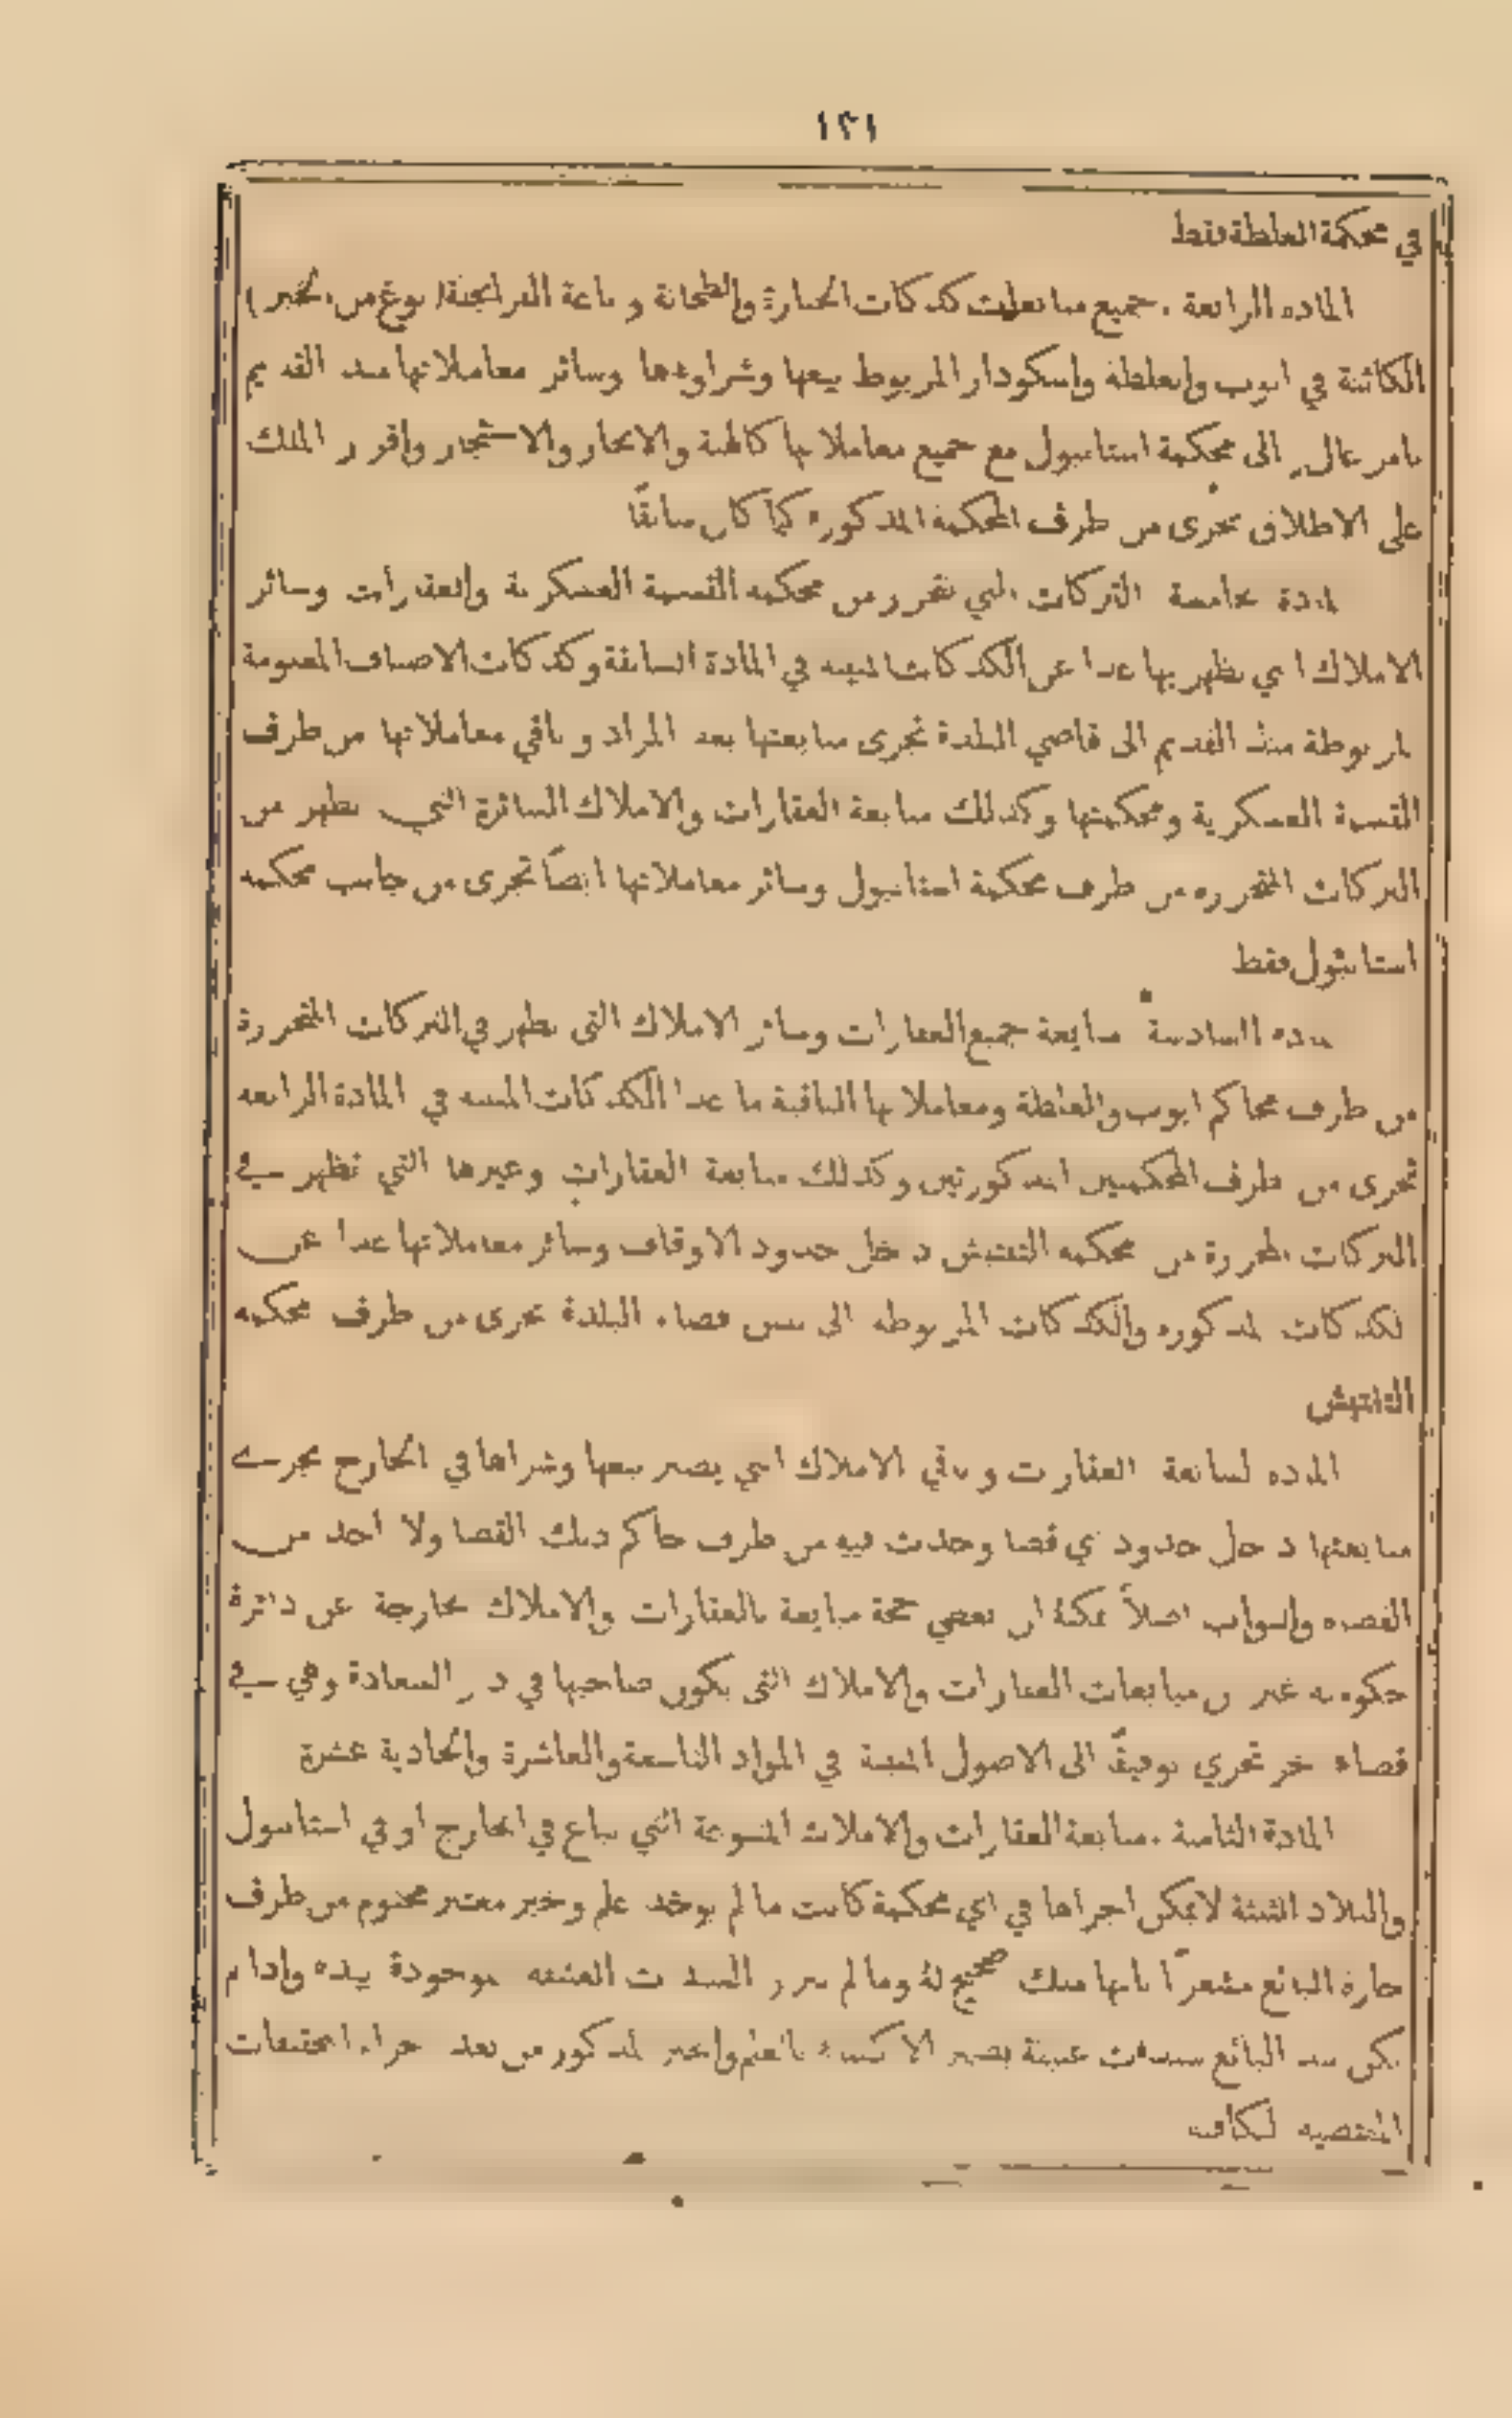 ١٢١
في محكمة الغلطة فقط
المادة الرابعة . جميع مبايعات كدكات الخبازة والطحانة وباعة الفرانجلة (نوع من الخبز)
الكائنة في ايوب والغلطة واسكودار المربوط بيعها وشراؤها وسائر معاملاتها منذ القديم
بامر عال الى محكمة استانبول مع جميع معاملاتها كالهبة والايجار والاستئجار واقرار الملك
على الاطلاق تجرى من طرف المحكمة المذكورة كما كان سابقًا
المادة الخامسة التركات التي تتحرر من محكمة القسمة العسكرية والعقارات وسائر
الاملاك التي تظهر بها عدا عن الكدكات المبينة في المادة السابقة وكدكات الاصناف المعلومة
المربوطة منذ القديم الى قاضي البلدة تجرى مبايعتها بعد المزاد وباقي معاملاتها من طرف
القسمة العسكرية ومحكمتها وكذلك مبايعة العقارات والاملاك السائرة التي تظهر من
التركات المتحررة من طرف محكمة استانبول وسائر معاملاتها ايضًا تجرى من جانب محكمة
استانبول فقط
المادة السادسة مبايعة جميع العقارات وسائر الاملاك التي تظهر في التركات المتحررة
من طرف محاكم ايوب والغلطة ومعاملاتها الباقية ما عدا الكدكات المبينة في المادة الرابعة
تجرى من طرف المحكمتين المذكورتين وكذلك مبايعة العقارات وغيرها التي تظهر في
التركات المحررة من محكمة التفتيش داخل حدود الاوقاف وسائر معاملاتها عدا عن
الكدكات المذكورة والكدكات المربوطة الى نفس قضاء البلدة تجرى من طرف محكمة
التفتيش
المادة السابعة العقارات وباقي الاملاك التي يصير بيعها وشراها في الخارج تجرى
مبايعتها داخل حدود اي قضا وجدت فيه من طرف حاكم ذلك القضا ولا احد من
القضاة والنواب اصلاً يمكنهُ ان يعطي حجة مبايعة بالعقارات والاملاك الخارجة عن دائرة
حكومته غير ان مبايعات العقارات والاملاك التي يكون صاحبها في دار السعادة وهي في
قضاء اخر تجري توفيقًا الى الاصول المبينة في المواد التاسعة والعاشرة والحادية عشرة
المادة الثامنة . مبايعة العقارات والاملاك المتنوعة التي تباع في الخارج او في استانبول
والبلاد الثلثة لا يمكن اجراها في اي محكمة كانت ما لم يوخذ علم وخبر معتبر مختوم من طرف
حارة البائع مشعرًا بانها ملك صحيح لهُ وما لم تبرز السندات العتيقة الموجودة بيده واذا لم
يكن بيد البائع سندات عتيقة يصير الاكتفاء بالعلم والخبر المذكور من بعد اجراء التحقيقات
المقتضية الكافية